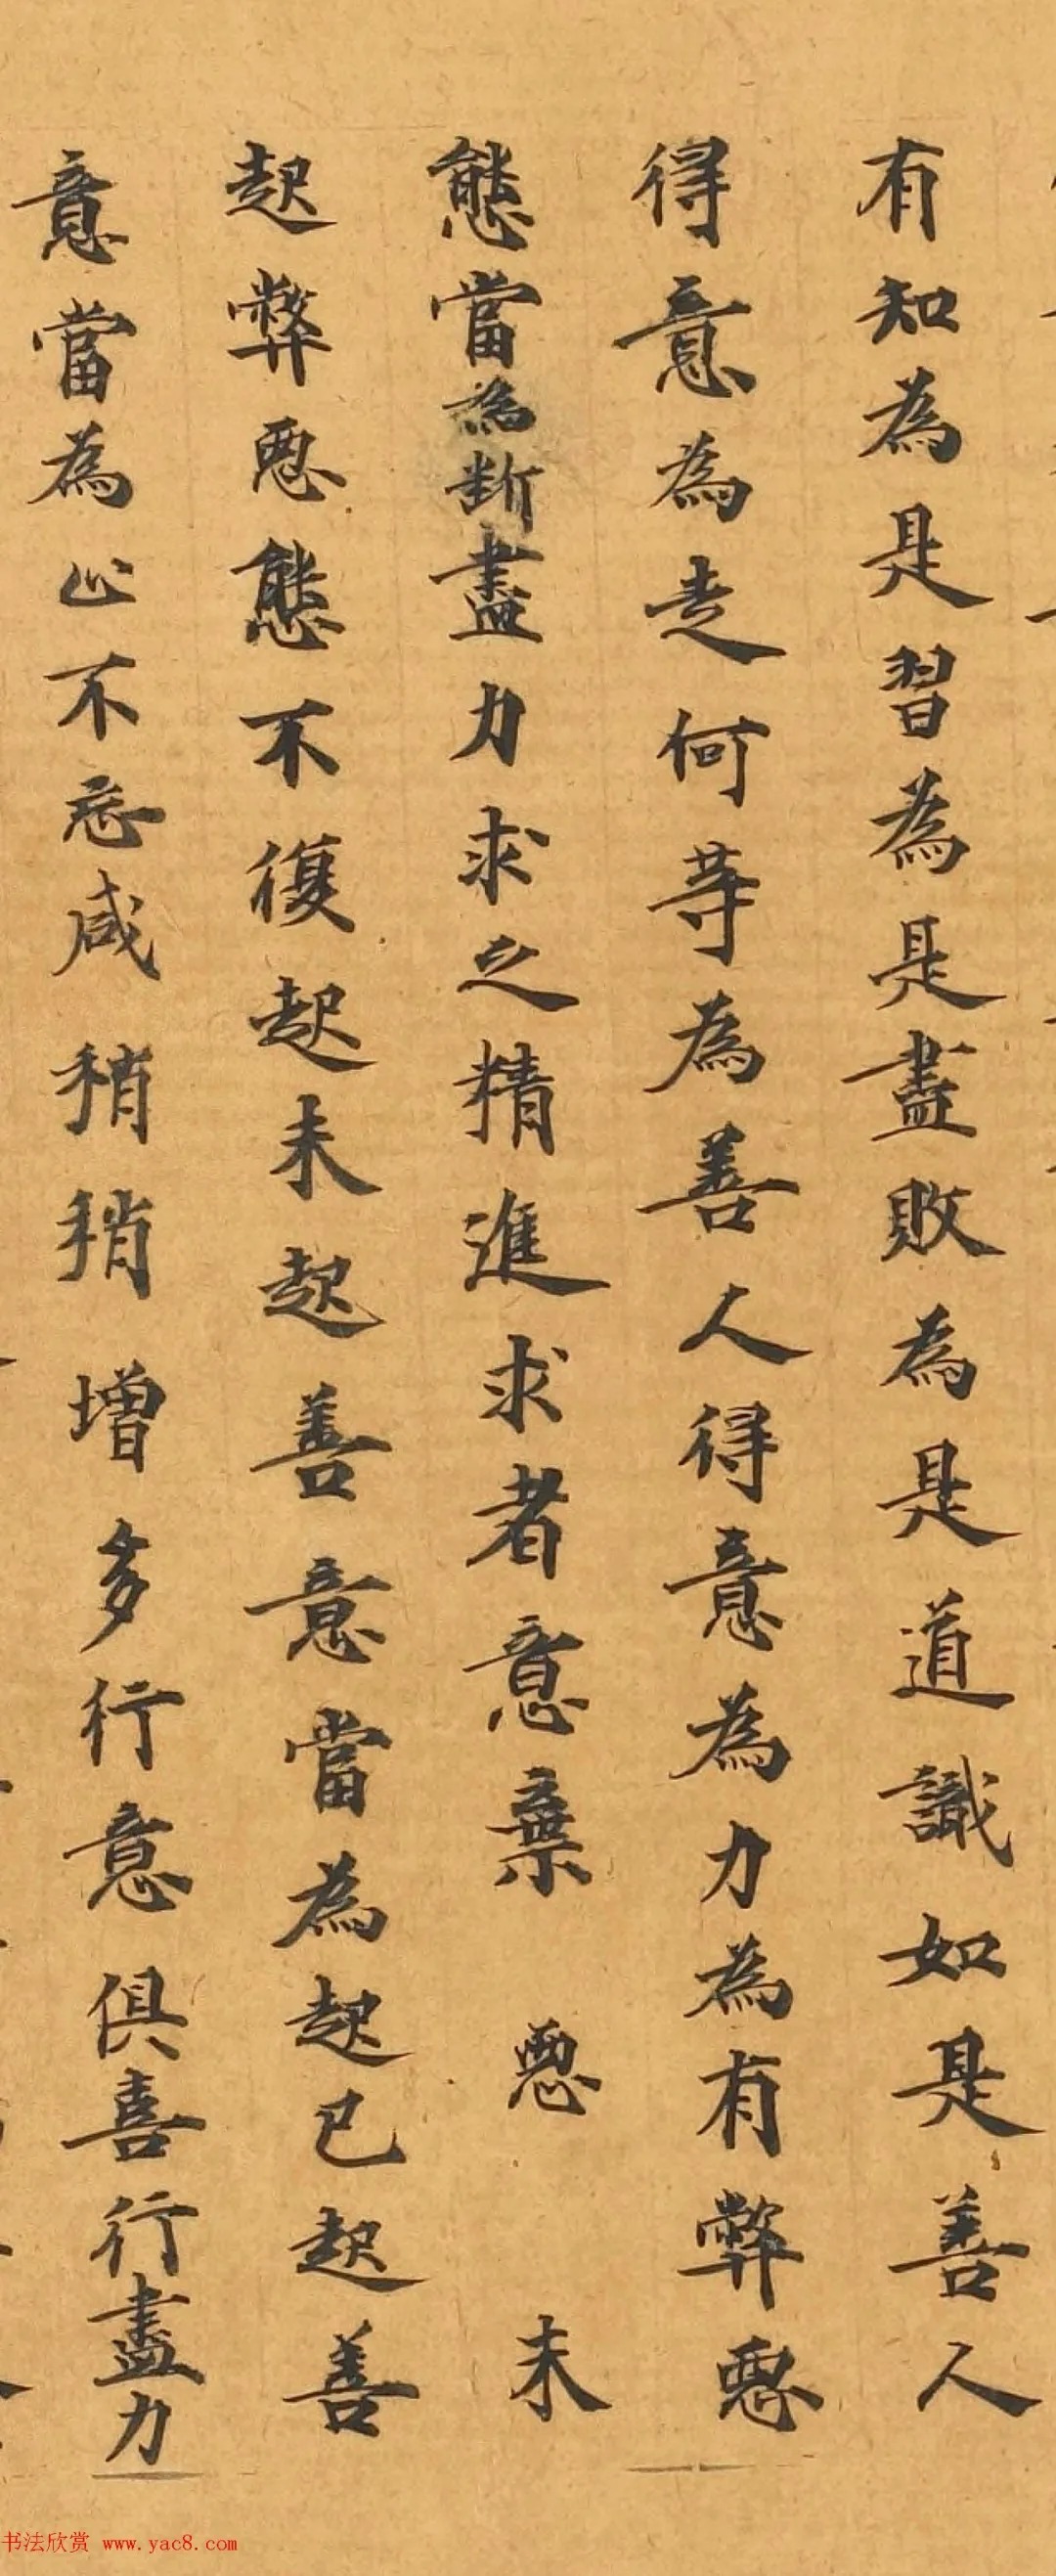 有知為是習為是盡敗為是道識如是善人
得意為走何等為善人得意為力為有弊惡
態當為斷盡力求之精進求者意棄惡未
起弊惡態不復起未起善意當為起已起善
意當為止不忘咸稍稍增多行意俱喜行盡力
书法欣赏 www.yac8.com